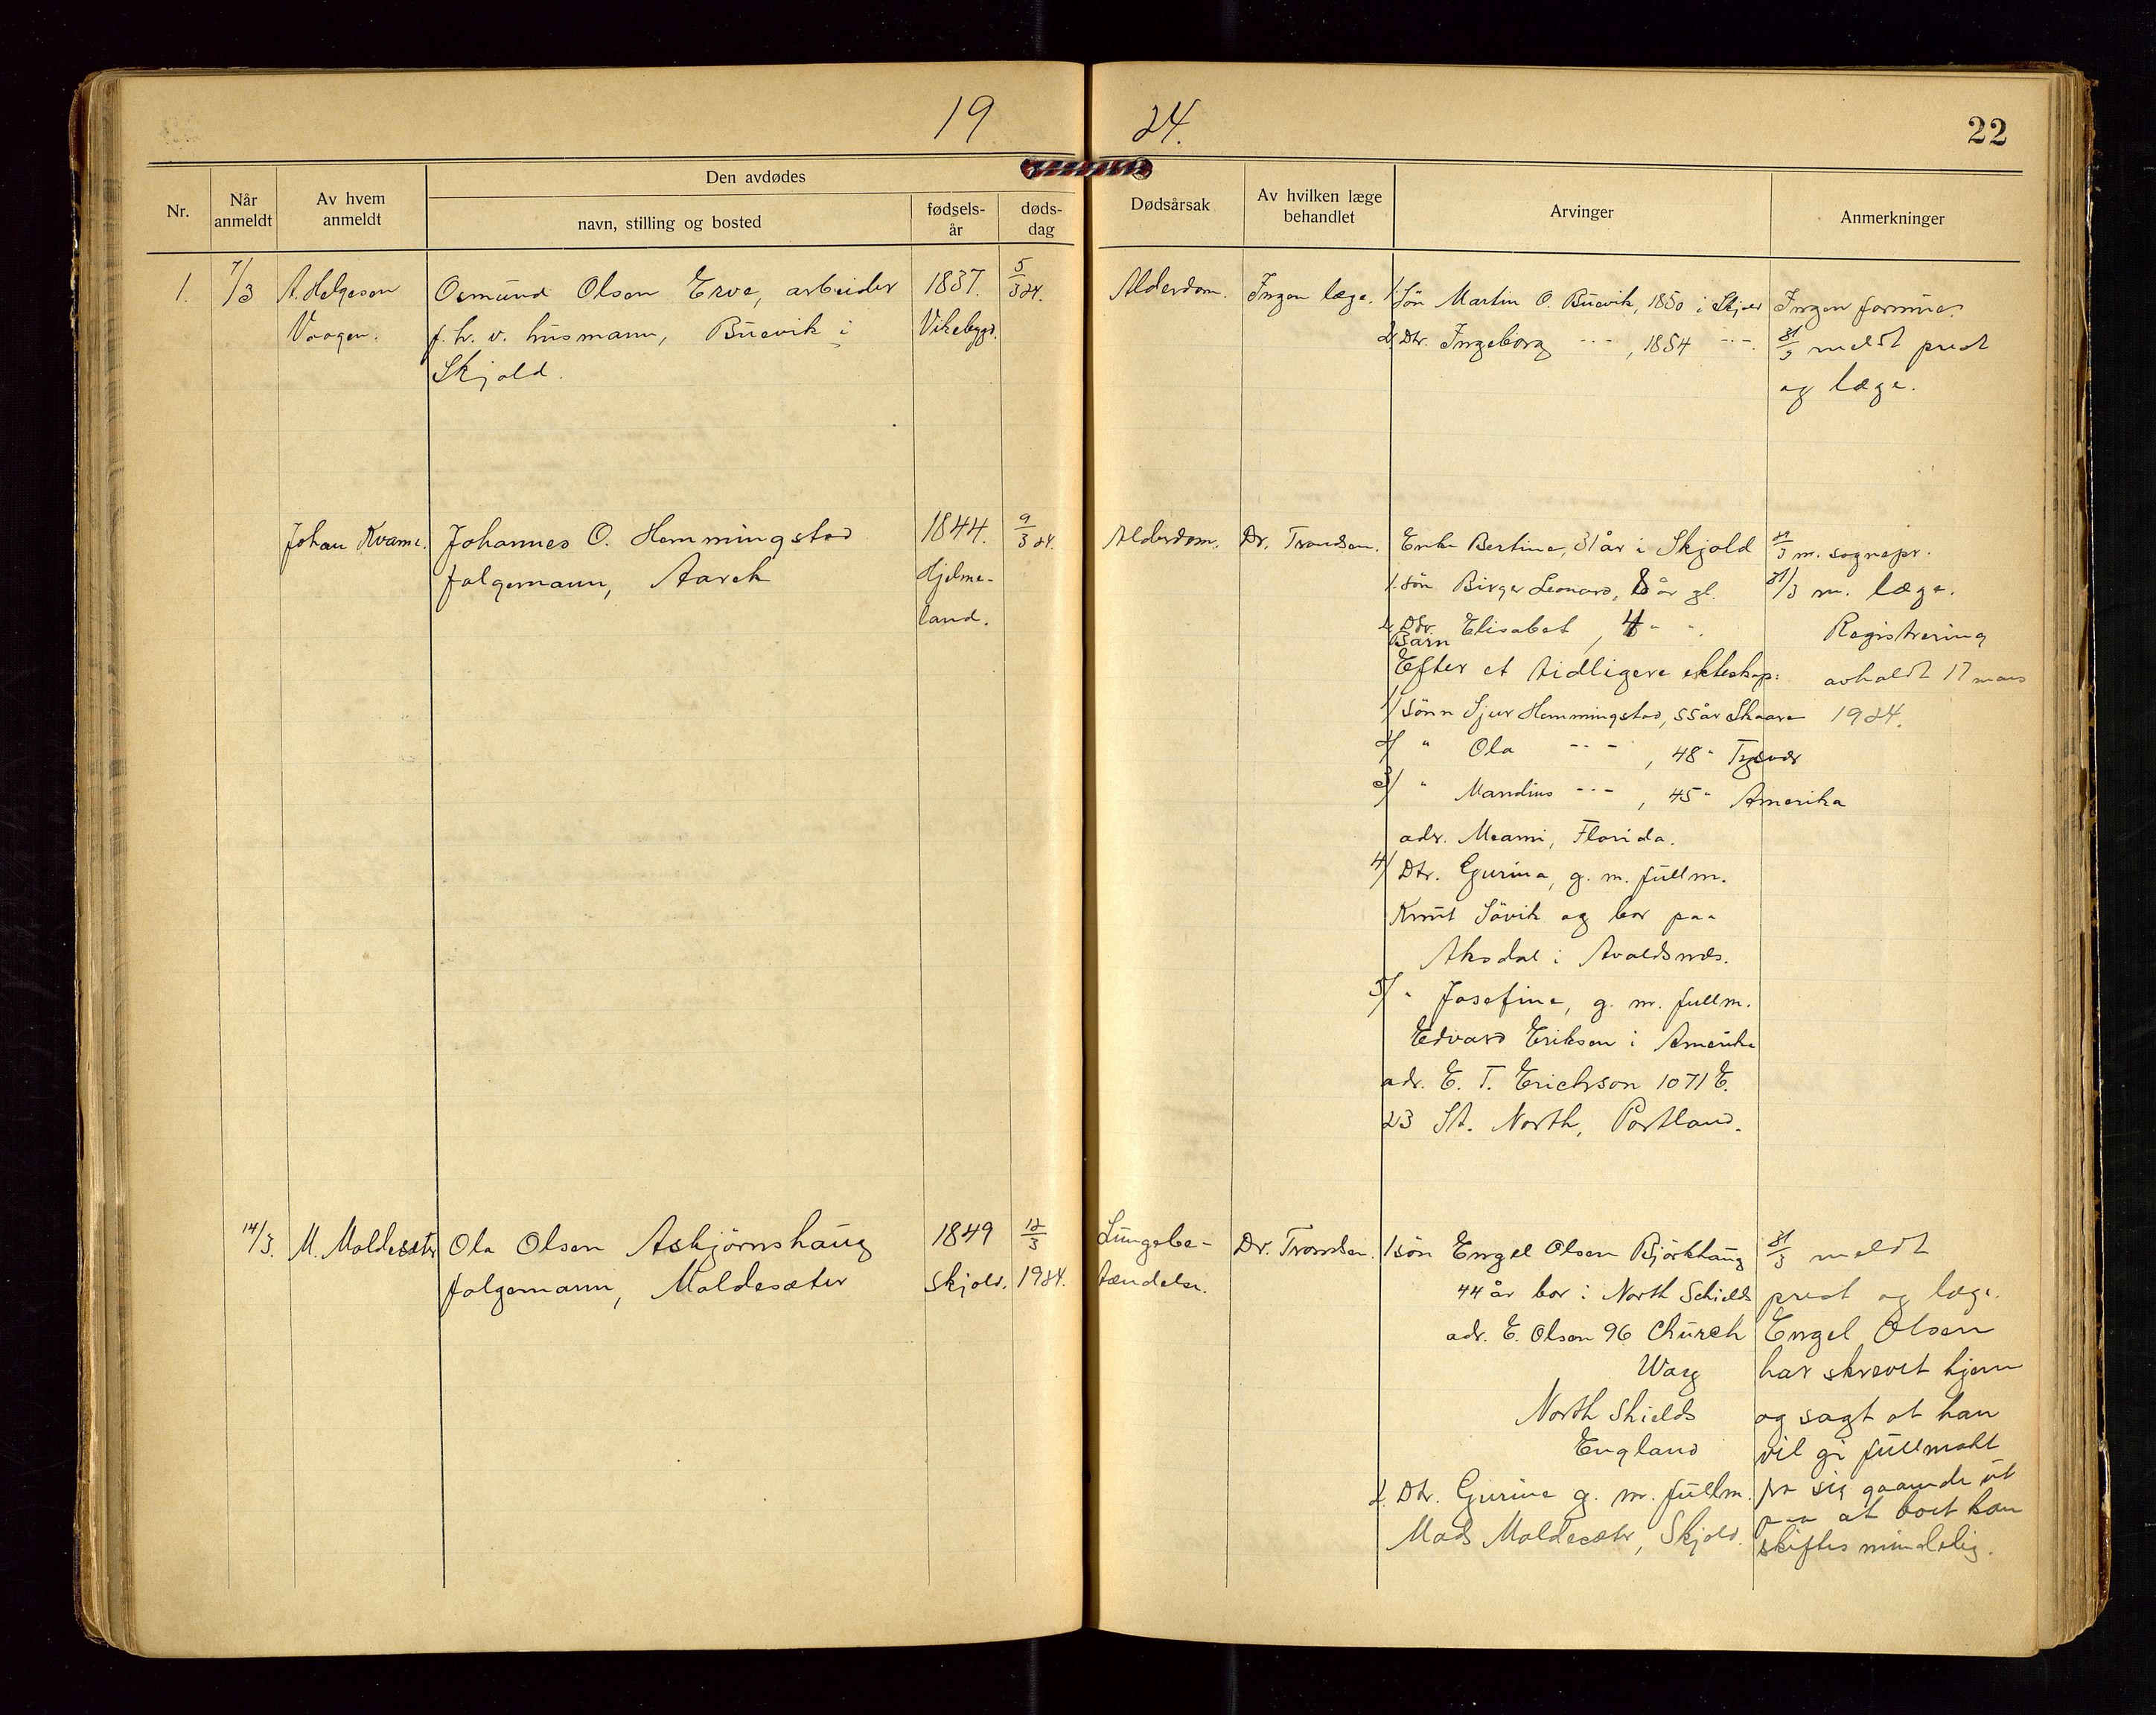 19 24.
22
Nr.
Når anmeldt
Av hvem anmeldt
Den avdødes
navn, stilling og bosted
fødsels-år
døds-dag
Dødsårsak
Av hvilken læge behandlet
Arvinger
Anmerkninger
1.
7/3
A. Helgesen
Vaagen.
Osmund Olsen Erve, arbeider
f. h. v. husmann, Buevik i
Skjold.
1837.
Vikebygd.
5/3 24.
Alderdom.
Ingen læge.
1. Søn Martin O. Buevik, 1850 i Skjold
2. Dtr. Ingeborg --- , 1854 ---.
Ingen formue.
31/3 meldt prest
og læge.
Johan Kvame.
Johannes O. Hemmingstad
folgemann, Aarek
1844.
Hjelme-
land.
9/3 24.
Alderdom.
Dr. Trondsen.
Enke Bertine, 31 år i Skjold
1. søn Birger Leonard, 8 år gl.
2. Dtr. Elisabet, 4 " "
Barn
Efter et tidligere ekteskap:
1/ sønn Sjur Hemmingstad, 55 år Skaare
2/ " Ola --- , 48 " Tysvær
3/ " Mandius --- , 45 " Amerika
adr. Meami, Florida.
4/ Dtr. Gurina, g. m. fullm.
Knut Søvik og bor paa
Aksdal i Avaldsnes.
5/ " Josefine, g. m. fullm.
Edvard Eriksen i Amerika
adr. E. T. Erichson 1071 E.
23 St. North, Portland.
m. sognepr.
31/3 m. læge.
Registrering
avholdt 17 mars
1924.
14/3.
M. Moldesæter
Ola Olsen Askjørnshaug
folgemann, Moldesæter
1849
Skjold.
12/3
1924.
Lungebe-
tændelse.
Dr. Trondsen.
1 søn Engel Olsen Bjørkhaug
44 år bor i North Schields
adr. E. Olsen 96 Church
Way
North Shields
England
2. Dtr. Gurine g. m. fullm.
Mads Moldesæter, Skjold.
31/3 meldt
prest og læge.
Engel Olsen
har skrevet hjem
og sagt at han
vil gi fullmakt
fra sig gaaende ut
paa at boet kan
skiftes mindelig.